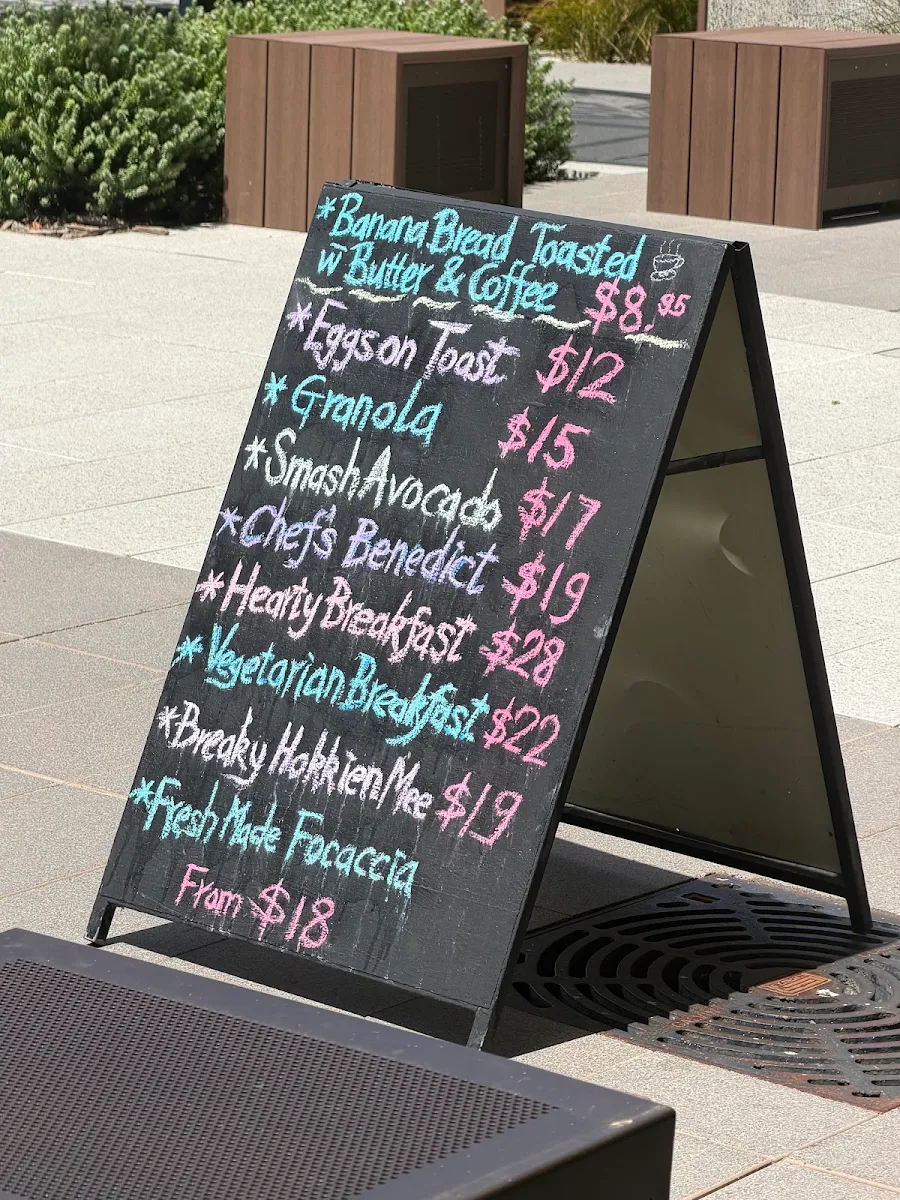 *Banana Bread Toasted
w̄ Butter & Coffee $8.95
*Eggs on Toast $12
*Granola $15
*Smash Avocado $17
*Chef's Benedict $19
*Hearty Breakfast $28
*Vegetarian Breakfast $22
*Breaky Hokkien Mee $19
*Fresh Made Focaccia
From $18